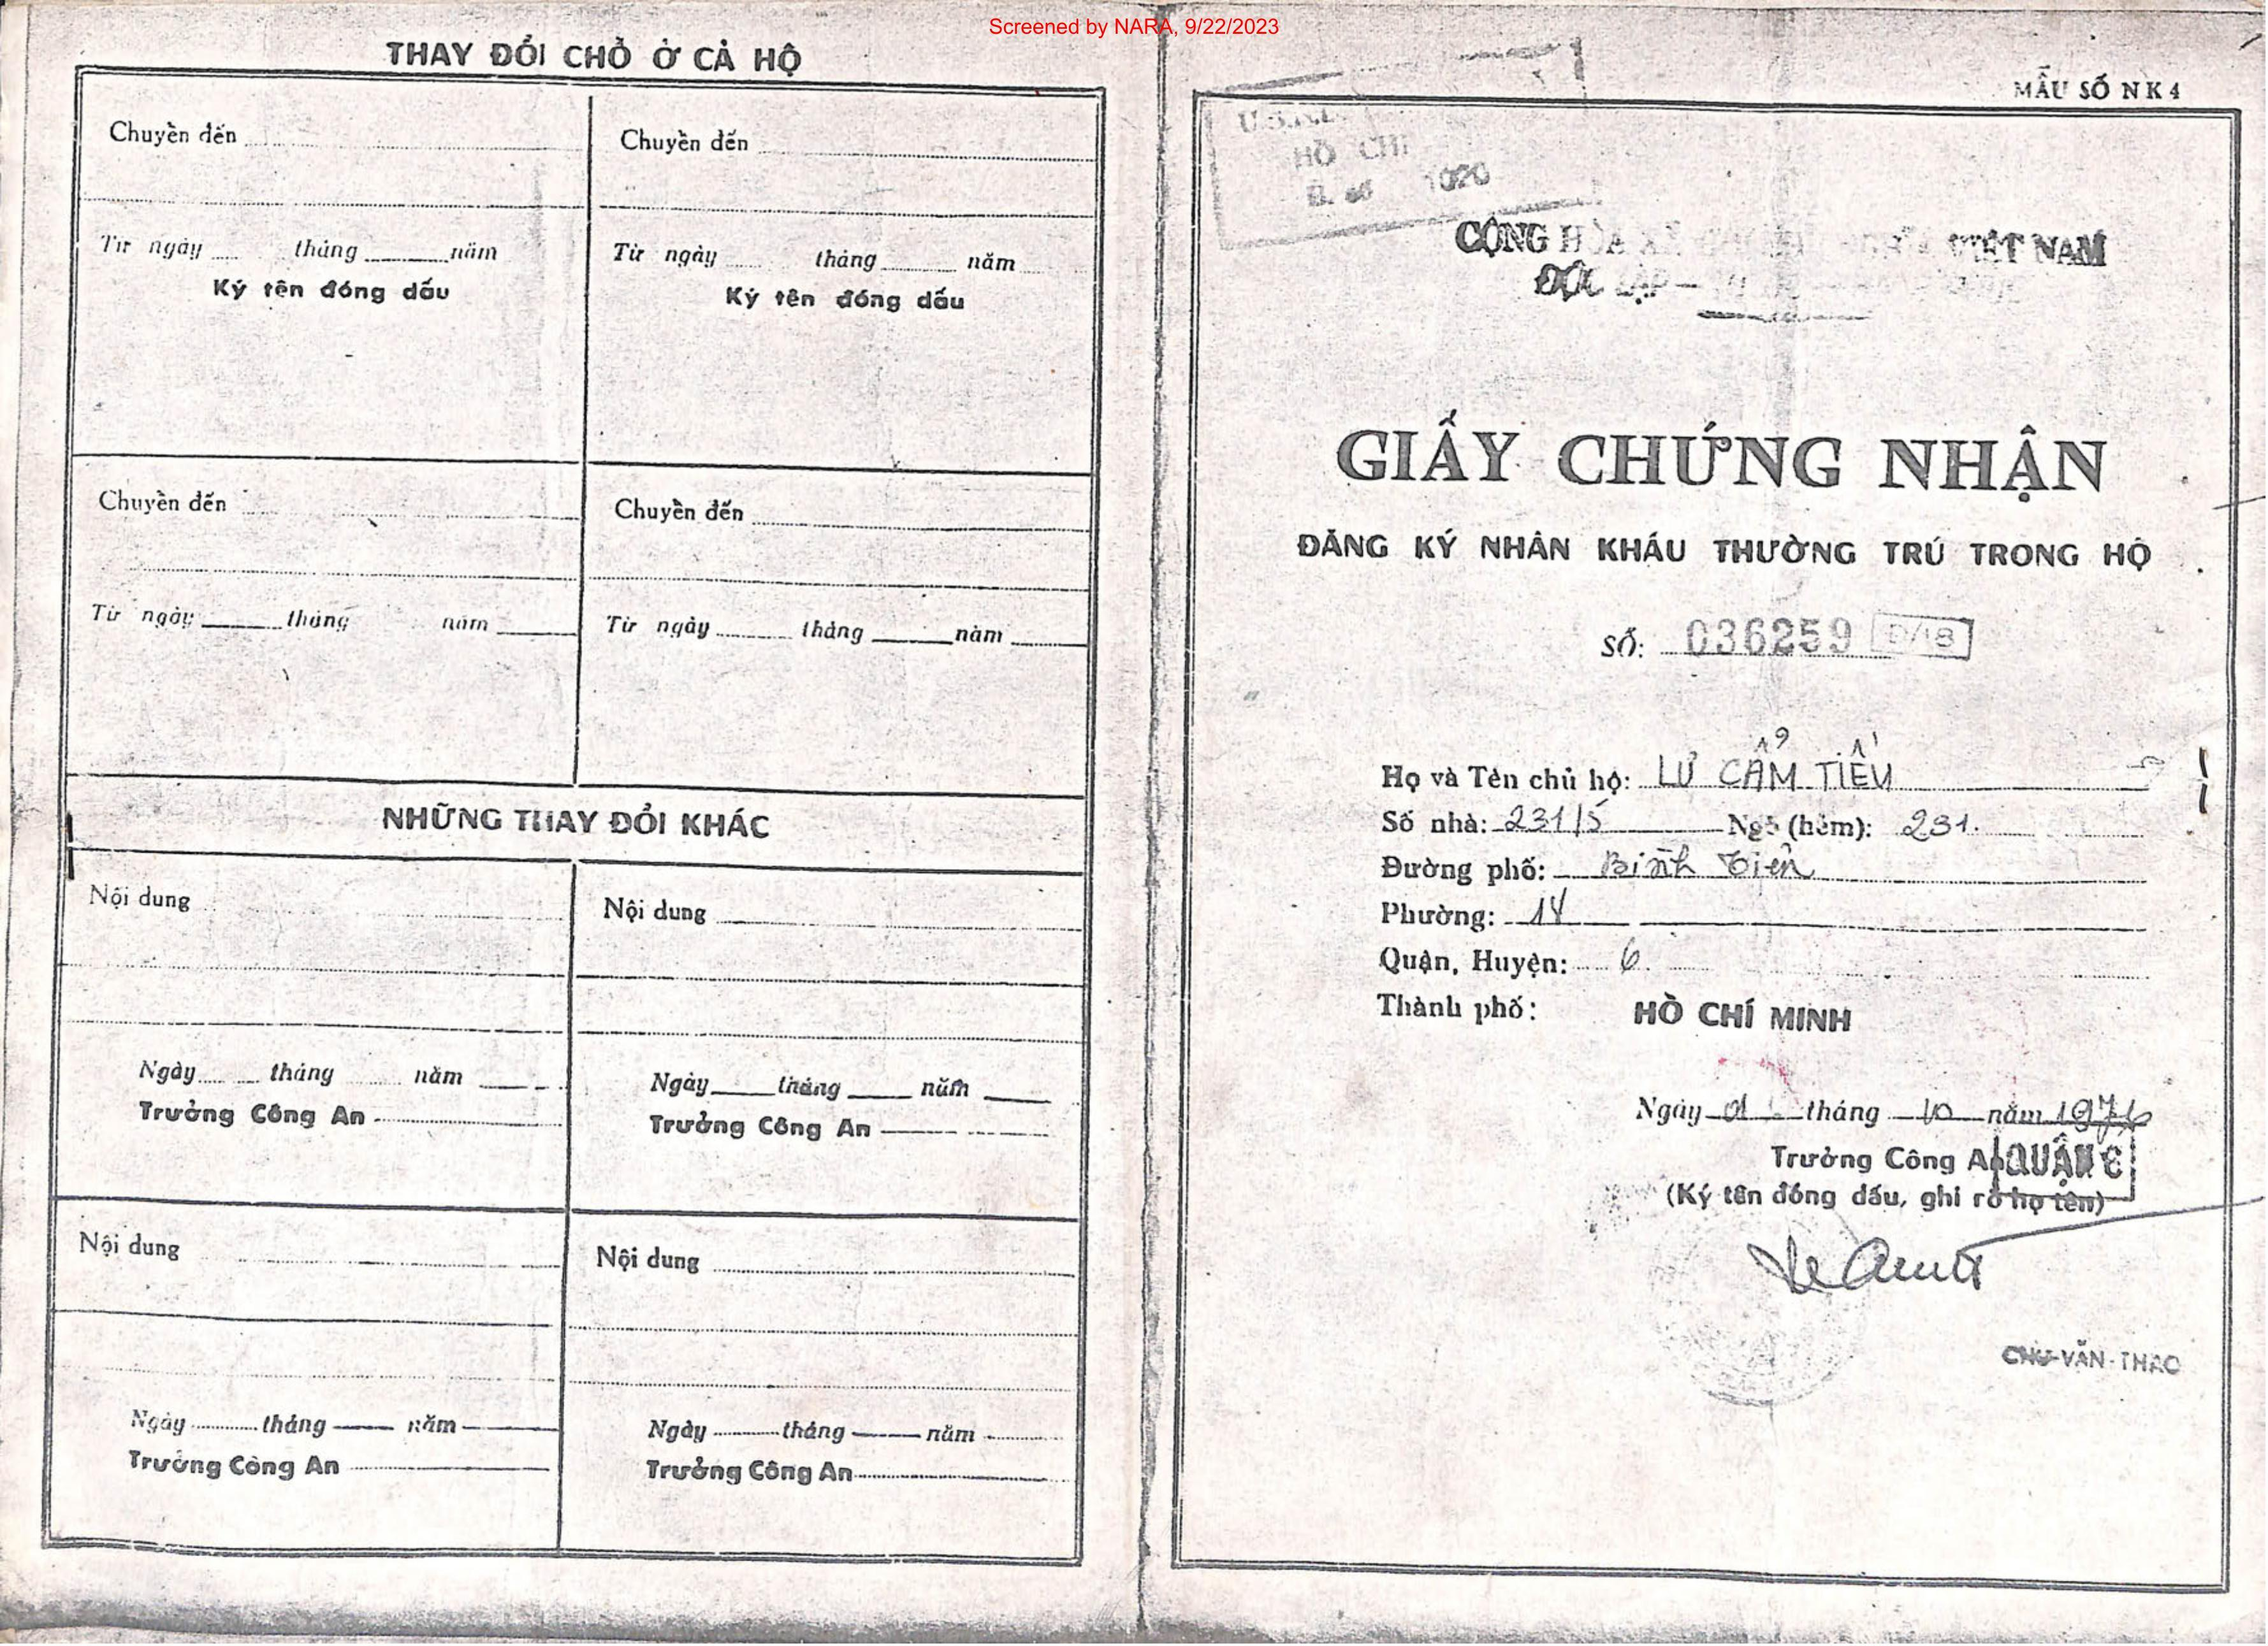 Screened by NARA, 9/22/2023
THAY ĐỔI CHỖ Ở CẢ HỘ
Chuyền đến
Từ ngày tháng năm
Ký tên đóng dấu
Chuyền đến
Từ ngày tháng năm
Ký tên đóng dấu
Chuyền đến
Từ ngày tháng năm
Chuyền đến
Từ ngày tháng năm
NHỮNG THAY ĐỔI KHÁC
Nội dung
Ngày tháng năm
Trưởng Công An
Nội dung
Ngày tháng năm
Trưởng Công An
Nội dung
Ngày tháng năm
Trưởng Công An
Nội dung
Ngày tháng năm
Trưởng Công An
MẪU SỐ NK4
HỒ CHÍ
1020
CỘNG HÒA XÃ VIỆT NAM
ĐỘC LẬP —
GIẤY CHỨNG NHẬN
ĐĂNG KÝ NHÂN KHẨU THƯỜNG TRÚ TRONG HỘ
SỐ: 036259 D/18
Họ và Tên chủ hộ: LƯ CẨM TIẾU
Số nhà: 231/5 Ngõ (hẻm): 231.
Đường phố: Bình Tiên
Phường: 14
Quận, Huyện: 6.
Thành phố: HỒ CHÍ MINH
Ngày 01 tháng 10 năm 1976
Trưởng Công An QUẬN 6
(Ký tên đóng dấu, ghi rõ họ tên)
CHU-VĂN-THAO